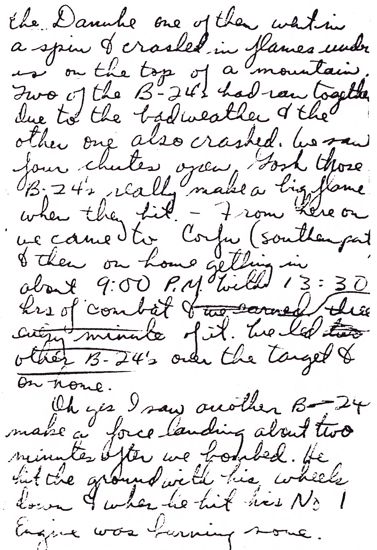 the Danube one of them went in
a spin & crashed in flames under
us on the top of a mountain.
Two of the B-24's had ran together
due to the bad weather & the
other one also crashed. We saw
four chutes open, Gosh those
B-24's really make a big flame
when they hit. - From here on
we came to Corfu (southern part
& then on home getting in
about 9:00 P.M. with 13:30
hrs of combat & we earned
every minute of it. We led two
other B-24's over the target &
on home.
Oh yes I saw another B-24
make a force landing about two
minutes after we bombed. He
hit the ground with his wheels
down & when he hit his No 1
Engine was burning some.